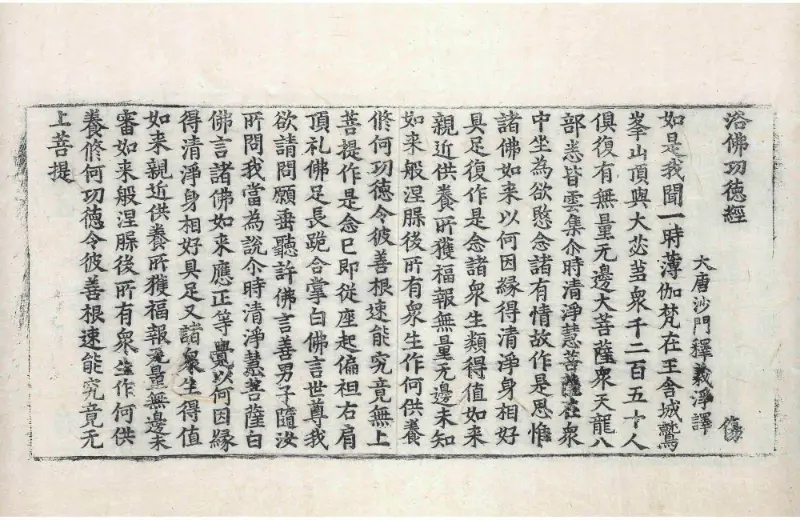 浴佛功德經
大唐沙門釋義淨譯 傷
如是我聞一時薄伽梵在王舍城鷲
峯山頂與大苾芻衆千二百五十人
俱復有無量无邊大菩薩衆天龍八
部悉皆雲集尒時清淨慧菩薩在衆
中坐為欲愍念諸有情故作是思惟
諸佛如来以何因緣得清淨身相好
具足復作是念諸衆生類得值如来
親近供養所獲福報無量无邊未知
如来般涅槃後所有衆生作何供養
修何功德令彼善根速能究竟無上
菩提作是念已即從座起偏袒右肩
頂礼佛足長跪合掌白佛言世尊我
欲請問願垂聽許佛言善男子隨汝
所問我當為說尒時清淨慧菩薩白
佛言諸佛如来應正等覺以何因緣
得清淨身相好具足又諸衆生得值
如来親近供養所獲福報无量無邊未
審如来般涅槃後所有衆生作何供
養修何功德令彼善根速能究竟无
上菩提